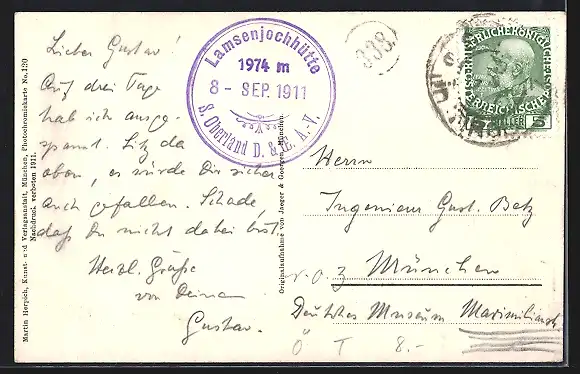 Lieber Gustav!
Auf drei Tage
hab ich ausge-
spannt. Sitz da
oben, es würde Dir sicher
auch gefallen. Schade,
daß Du nicht dabei bist.
Herzl. Grüße
von Deinem
Gustav.
Lamsenjochhütte
1974 m
8 - SEP. 1911
S. Oberland D. & Ö. A. V.
338
5 HELLER 5
Herrn
Ingenieur Gust. Betz
München
Deutsches Museum Maximilianstr
Ö T 8.-
Martin Herpich, Kunst- und Verlagsanstalt, München, Photochromiekarte No. 120
Nachdruck verboten 1911.
Originalaufnahme von Jaeger & Goergen, München.